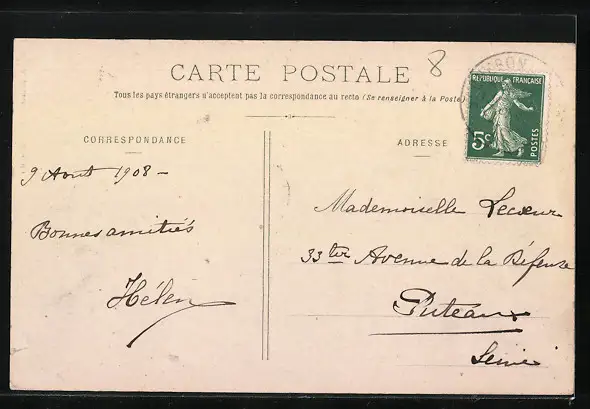 CARTE POSTALE
8
Tous les pays étrangers n'acceptent pas la correspondance au recto (Se renseigner à la Poste)
RÉPUBLIQUE FRANÇAISE
5c
POSTES
CORRESPONDANCE
ADRESSE
9 Août 1908 -
Bonnes amitiés
Hélèn
Mademoiselle Lecœur
33 ter Avenue de la Défense
Puteaux
Seine